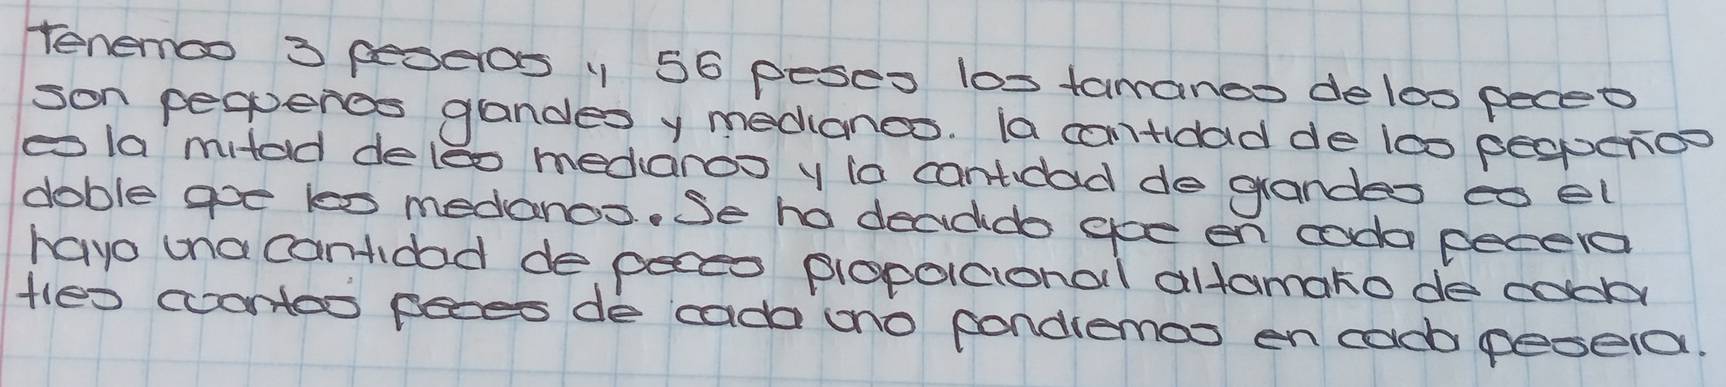 Tenemos 3 peseras y 56 peses los tamanos de los peces
son pequenos grandes y medianos. la cantidad de los pequeños
es la mitad de los medianos y la cantidad de grandes es el
doble que los medanos. Se ha decidido que en cada pecera
haya una cantidad de peces proporcional al tamaño de cada
tres cuantos peces de cada uno pondremos en cada pesera.